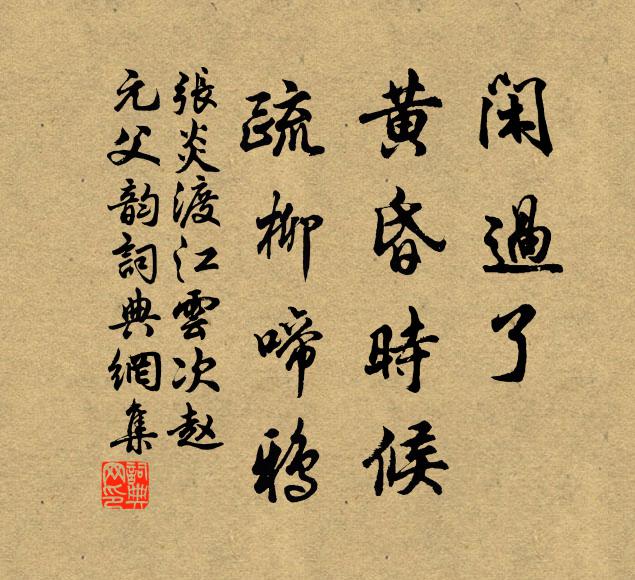 閑過了
黄昏時候
疏柳啼鴉
張炎渡江雲次赵
元父韵詞典網集
詞典网印